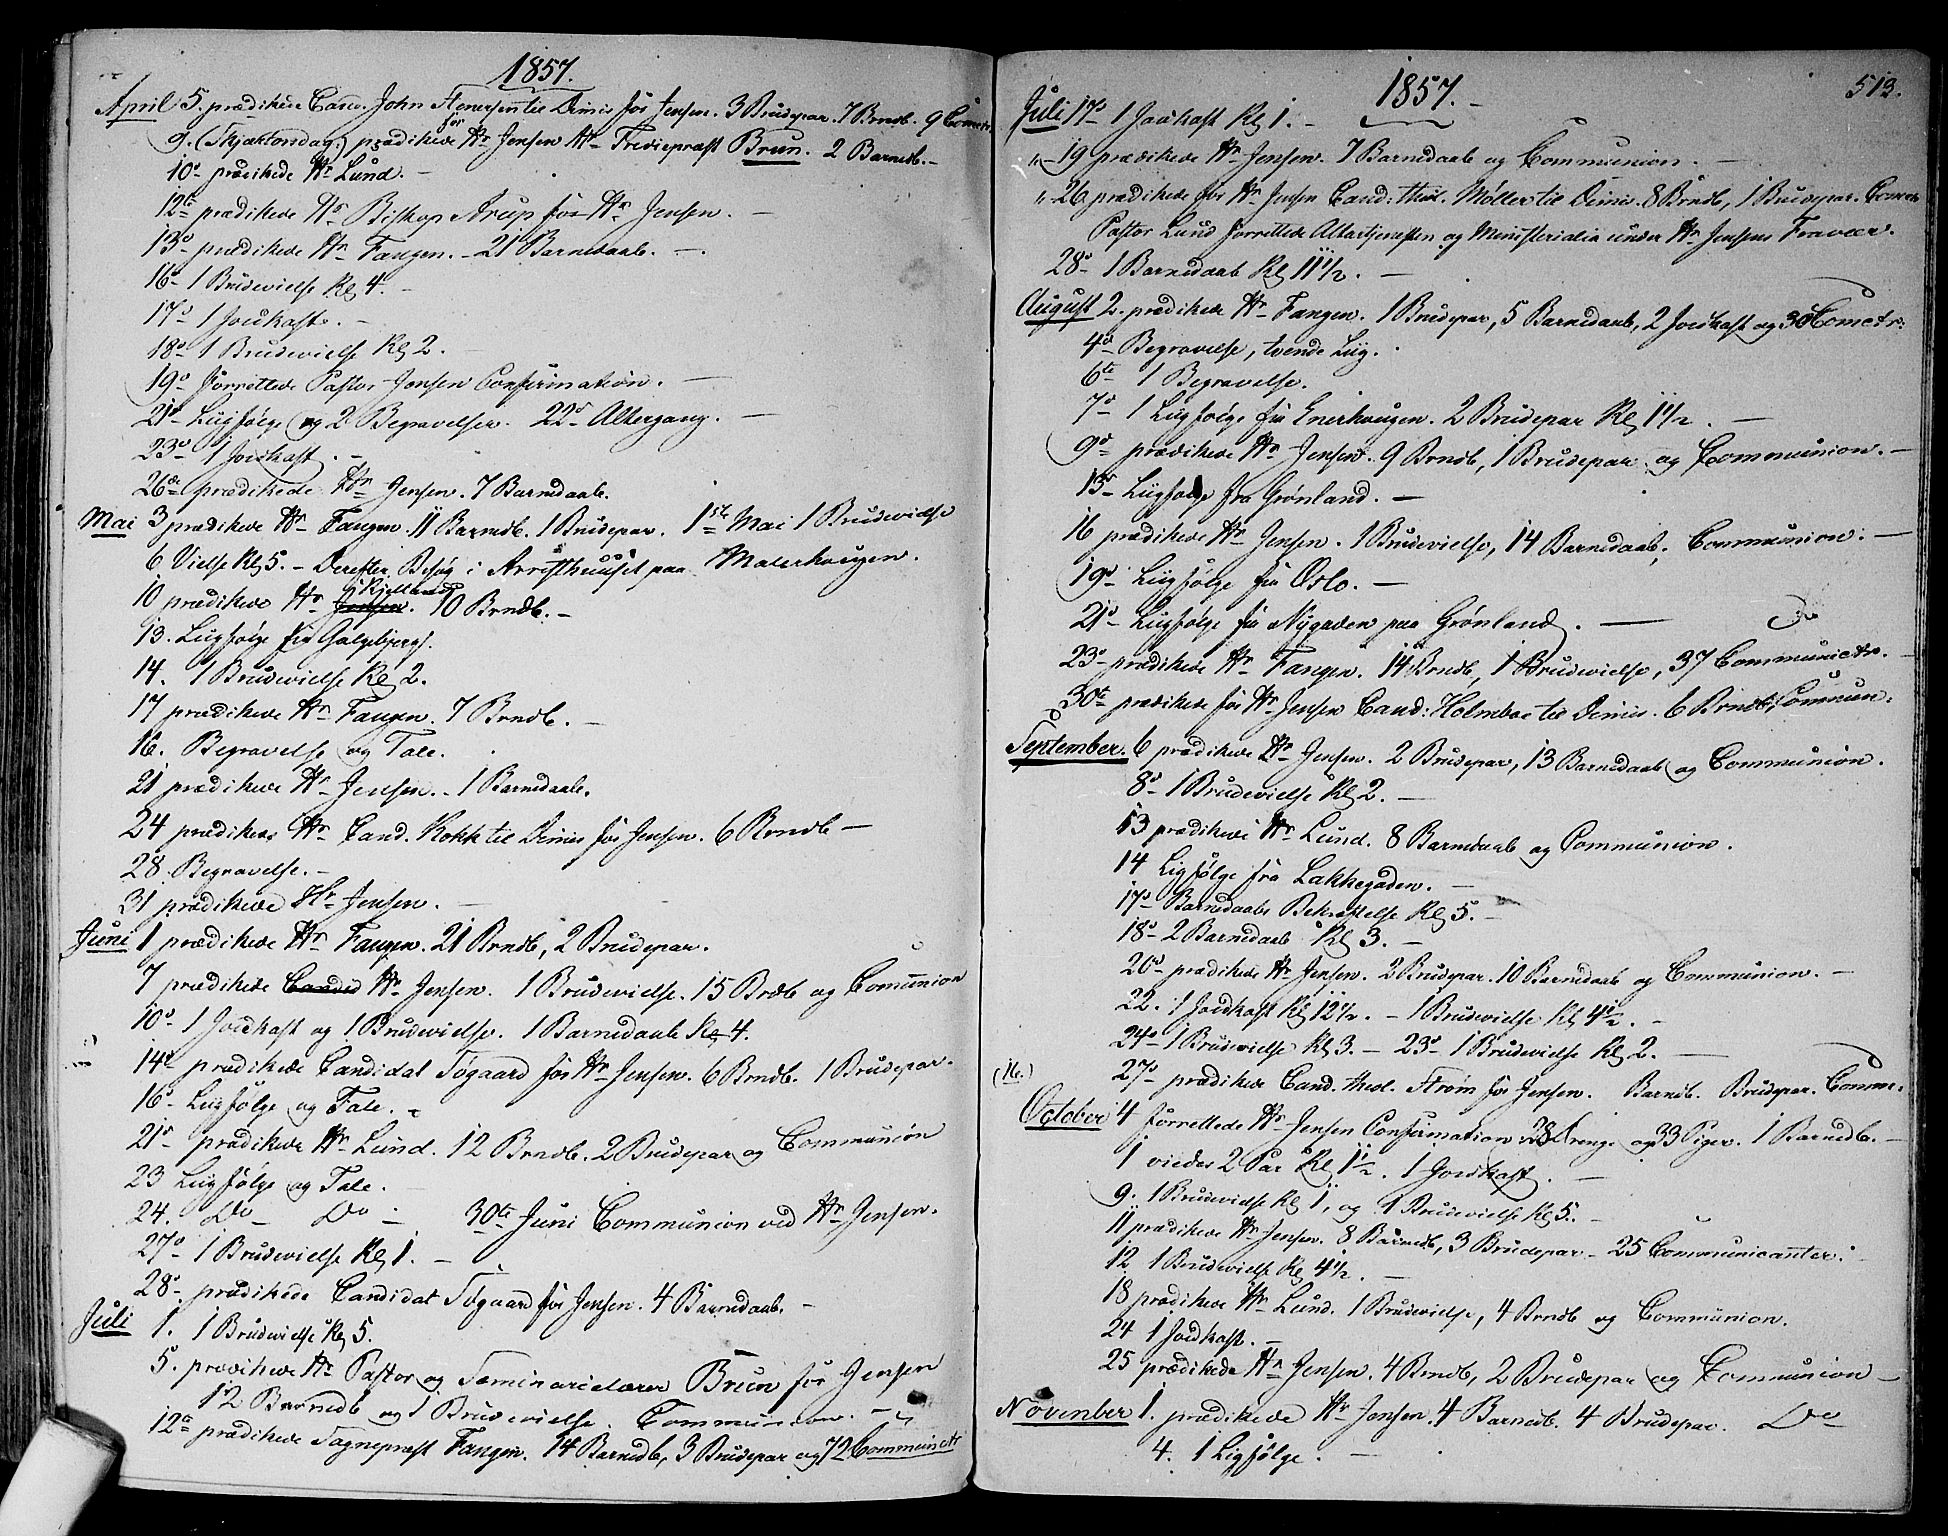 1857.
April 5. prædikede Cand. John Stenersen til Dimis for Jensen. 3 Brudepar. 7 Brndb. 9 Comctr
9. (Skjærtorsdag) prædikede for Hr Jensen Hr Tredieprest Brun. 2 Barnedb. –
10de prædikede Hr Lund. –
12te prædikede Hr Biskop Arup for Hr Jensen. –
13de prædikede Hr Fangen. – 21 Barnedaab. –
16de 1 Brudevielse Kl 4. –
17de 1 Jordkast. –
18de 1 Brudevielse Kl 2. –
19de forrettede Pastor Jensen Confirmation. –
21de Liigfølge og 2 Begravelser. 22de Altergang. –
23de 1 Jordkast. –
26de prædikede Hr Jensen. 7 Barnedaab.
Mai 3 prædikede Hr Fangen. 11 Barnedb. 1 Brudepar. 1ste Mai 1 Brudevielse
6 Vielse Kl 5. – Derefter Besøg i Arresthuuset paa Malerhougen.
10 prædikede Hr Jensen Kjelland. 10 Brndb. –
13. Liigfølge fra Galgebjerg.
14. 1 Brudevielse Kl 2.
17 prædikede Hr Fangen. 7 Brndb. –
16. Begravelse og Tale.
21 prædikede Hr Jensen. – 1 Barnedaab.
24 prædikede Hr Cand. Kokk til Dimis for Jensen. 6 Brndb –
28 Begravelse. –
31 prædikede Hr Jensen. –
Juni 1 prædikede Hr Fangen. 21 Brndb, 2 Brudepar.
7 prædikede Candid Hr Jensen. 1 Brudevielse. 15 Brdb og Comunion
10de 1 Jordkast og 1 Brudevielse. 1 Barnedaab Kl 4.
14de prædikede Candidat Togaard for Hr Jensen. 6 Brndb. 1 Brudepar.
16de Liigfølge og Tale. –
21de prædikede Hr Lund. 12 Brndb. 2 Brudepar og Communion
23 Liigfølge og Tale. –
24. Do – Do – 30te Juni Communion ved Hr Jensen.
27de 1 Brudevielse Kl 1. –
28de prædikede Candidat Togaard for Jensen. 4 Barnedaab. –
Juli 1. 1 Brudevielse Kl 5.
5. prædikede Hr Pastor og Seminarielærer Brun for Jensen
12 Barnedb og 1 Brudevielse. Communion. –
12te prædikede Sognepræst Fangen. 14 Barnedb, 3 Brudepar og 72 Communictr
1857. –
513.
Juli 17de 1 Jordkast Kl 1. –
" – 19 prædikede Hr Jensen. 7 Barnedaab og Communion. –
" – 26 prædikede for Hr Jensen Cand: theol. Møller til Dimis. 8 Brndb, 1 Brudepar. Comctr
Pastor Lund forrettede Altertjenesten og Ministerialia under Hr Jensens Fravær.
28de 1 Barnedaab Kl 11 1/2. –
August 2. prædikede Hr Fangen. 1 Brudepar, 5 Barnedaab, 2 Jordkast og 30 Comctr:
4de Begravelse, tvende Liig.
6te 1 Begravelse.
7de 1 Liigfølge fra Enerhougen. 2 Brudepar Kl 1 1/2. –
9de prædikede Hr Jensen. 9 Brndb, 1 Brudepar og Communion. –
13de Liigfølge fra Grønland. –
16 prædikede Hr Jensen. 1 Brudevielse, 14 Barnedaab, Communion. –
19de Liigfølge fra Oslo. –
21de Liigfølge fra Nygaden paa Grønland. –
23de prædikede Hr Fangen. 14 Brndb, 1 Brudevielse, 37 Communictr. –
30te prædikede for Hr Jensen Cand: Holmboe til Dimis. 6 Brndb, Commun:
September. 6 prædikede Hr Jensen. 2 Brudepar, 13 Barnedaab og Communion.
8de 1 Brudevielse Kl 2. –
13 prædikede Hr Lund. 8 Barnedaab og Communion.
14 Ligfølge fra Lakkegaden. –
17de Barnedaabs Bekræftelse Kl 5. –
18de 2 Barnedaab Kl 3. –
20de prædikede Hr Jensen. 2 Brudepar. 10 Barnedaab og Communion. –
22. 1 Jordkast Kl 12 1/2. – 1 Brudevielse Kl 4 1/2. –
24de 1 Brudevielse Kl 3. – 23de 1 Brudevielse Kl 2. –
(16.)
27de prædikede Cand. theol. Strøm for Jensen. Barndb. Brudepar. Comm:
October 4 forrettede Hr Jensen Confirmation: 28 Drenge og 33 Piger. 1 Barnedb. –
1 viedes 2 Par Kl 1 1/2. 1 Jordkast. –
9. 1 Brudevielse Kl 1, og 1 Brudevielse Kl 5. –
11 prædikede Hr Jensen. 8 Barnedb, 3 Brudepar – 25 Communicanter. –
12. 1 Brudevielse Kl 4 1/2. –
18 prædikede Hr Lund. 1 Brudevielse, 4 Brndb og Communion.
24 1 Jordkast. –
25 prædikede Hr Jensen. 4 Brndb, 2 Brudepar og Communion –
November 1. prædikede Hr Jensen. 4 Barnedb. 4 Brudepar. Do
4. 1 Ligfølge. –